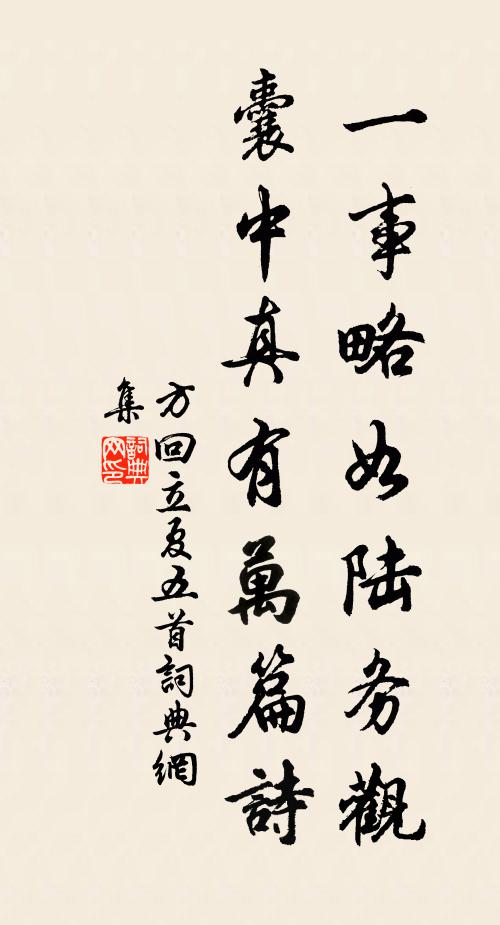 一事略如陆务觀
囊中真有萬篇詩
方回立夏五首詞典網
集
詞典網印